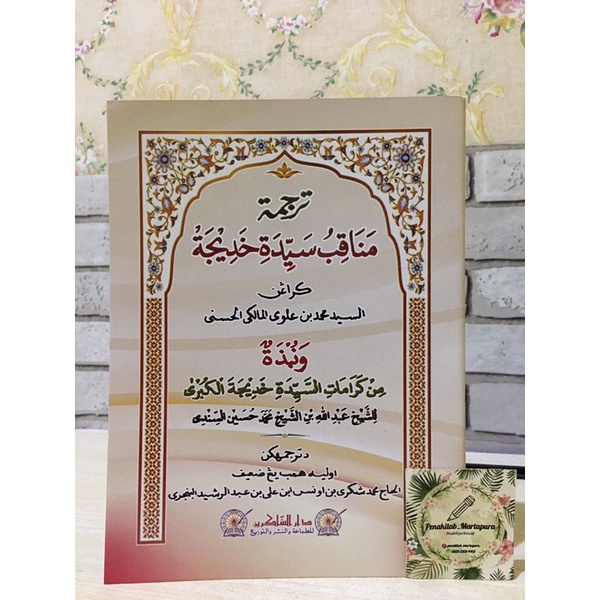 ترجمة
مَنَاقِبُ سَيِّدَةِ خَدِيْجَةْ
كراڠن
السيد محمد بن علوى المالكى الحسنى
وَنُبْذَةٌ
مِنْ كَرَامَاتِ السَّيِّدَةِ خَدِيْجَةَ الْكُبْرَى
لِلشَّيْخِ عَبْدِ اللهِ بْنِ الشَّيْخِ مُحَمَّد حُسَيْن السِّنْدِى
دترجمهكن
اوليه همب يڠ ضعيف
الحاج محمد شكرى بن اونس ابن على بن عبد الرشيد البنجرى
دار الشاكرين
للطباعة والنشر والتوزيع
Penakitab_Martapura